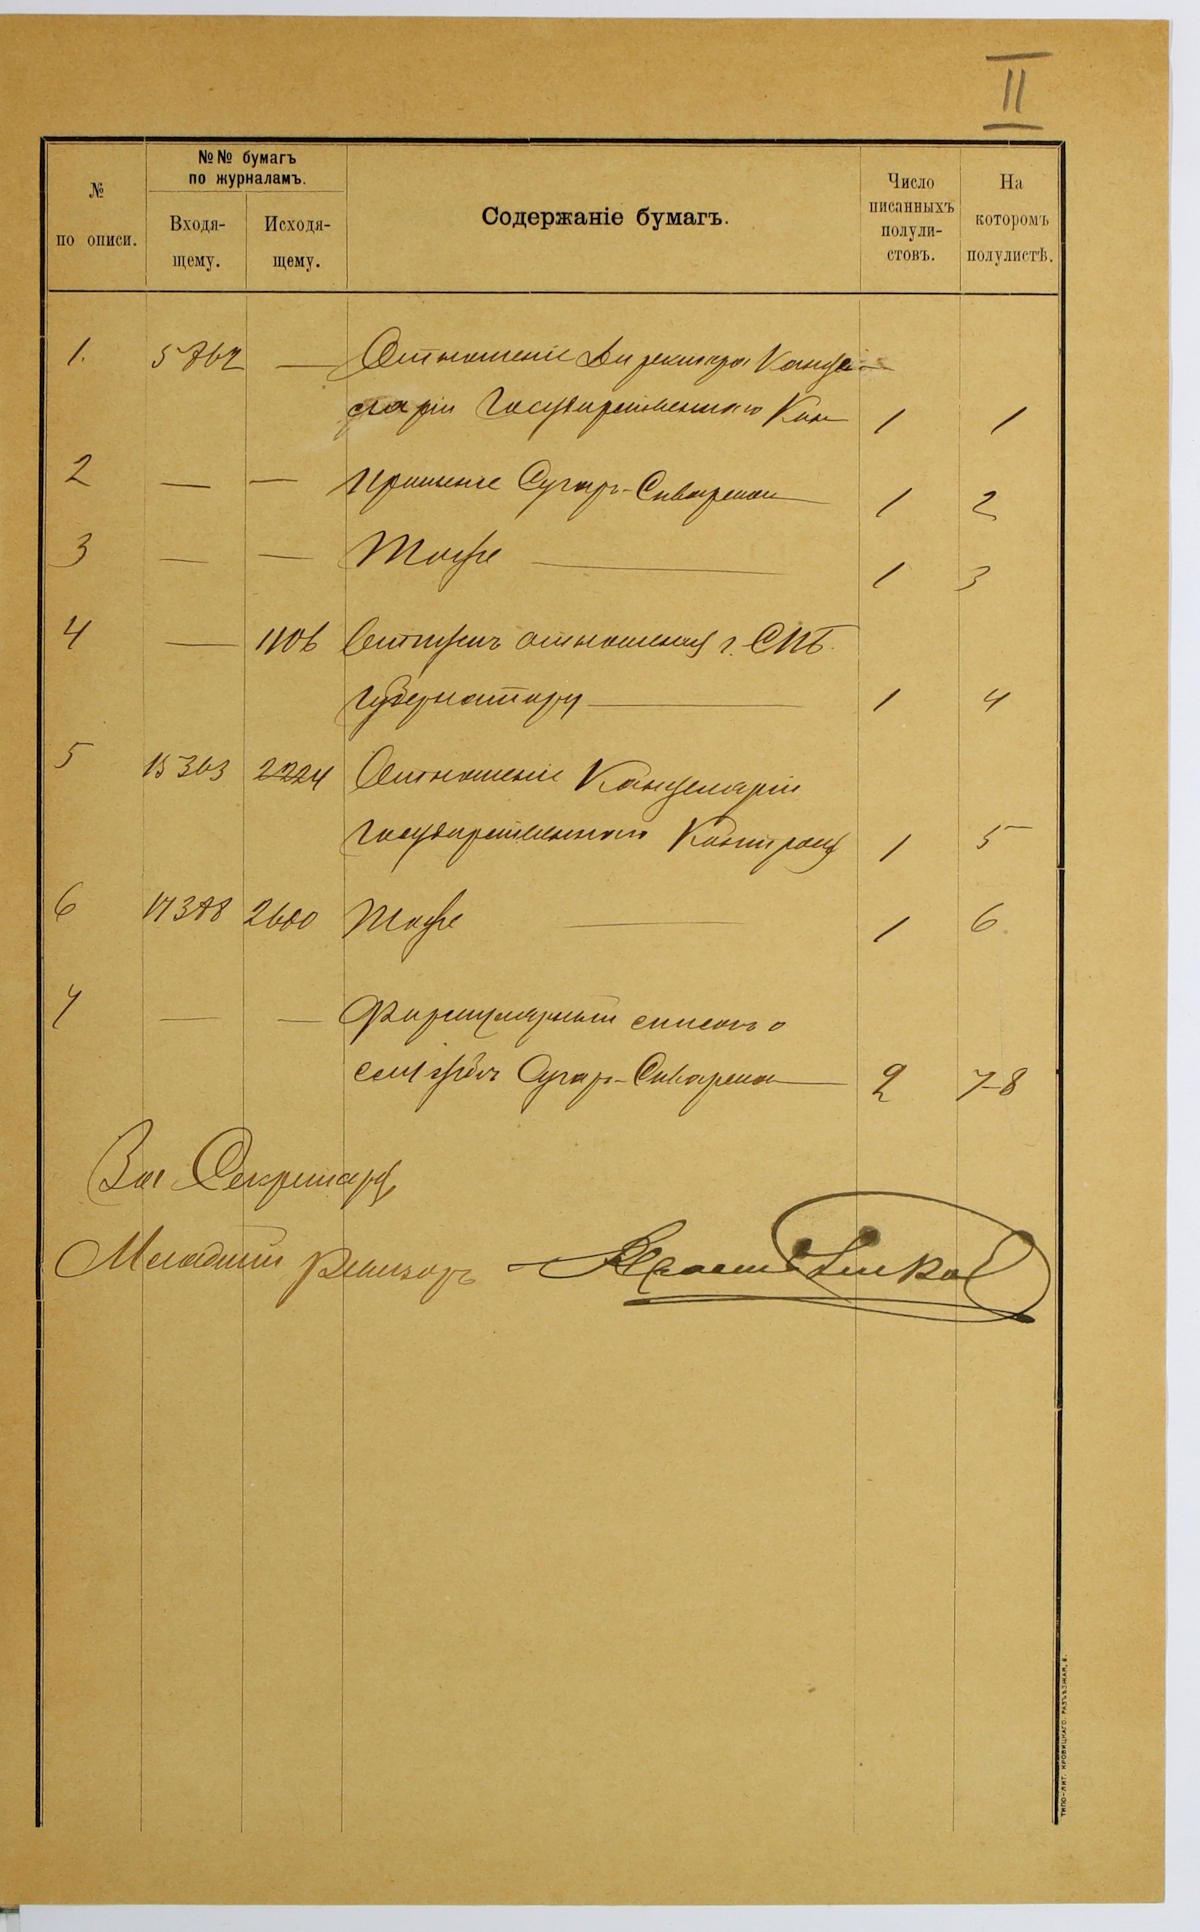 II
№ по описи.
№№ бумагъ
по журналамъ.
Входя-
щему.
Исходя-
щему.
Содержаніе бумагъ.
Число
писанныхъ
полули-
стовъ.
На
которомъ
полулистѣ.
1. — Отношеніе Директора Канце-
ляріи Государственнаго Кон 1 1
2 — — Прошеніе Сугаръ-Скварскаго 1 2
3 — — Тоже 1 3
4 — 1106 Отпускъ отношенія г. СПБ.
Губернатору 1 4
5 15303 2224 Отношеніе Канцеляріи
Государственнаго Контроля 1 5
6 17388 2600 Тоже 1 6
7 — — Формулярный списокъ о
службѣ 2 7-8
За Секретаря,
Младшій Ревизоръ
ТИПО-ЛИТ. КРОВИЦКАГО. РАЗЪѢЗЖАЯ, 8.